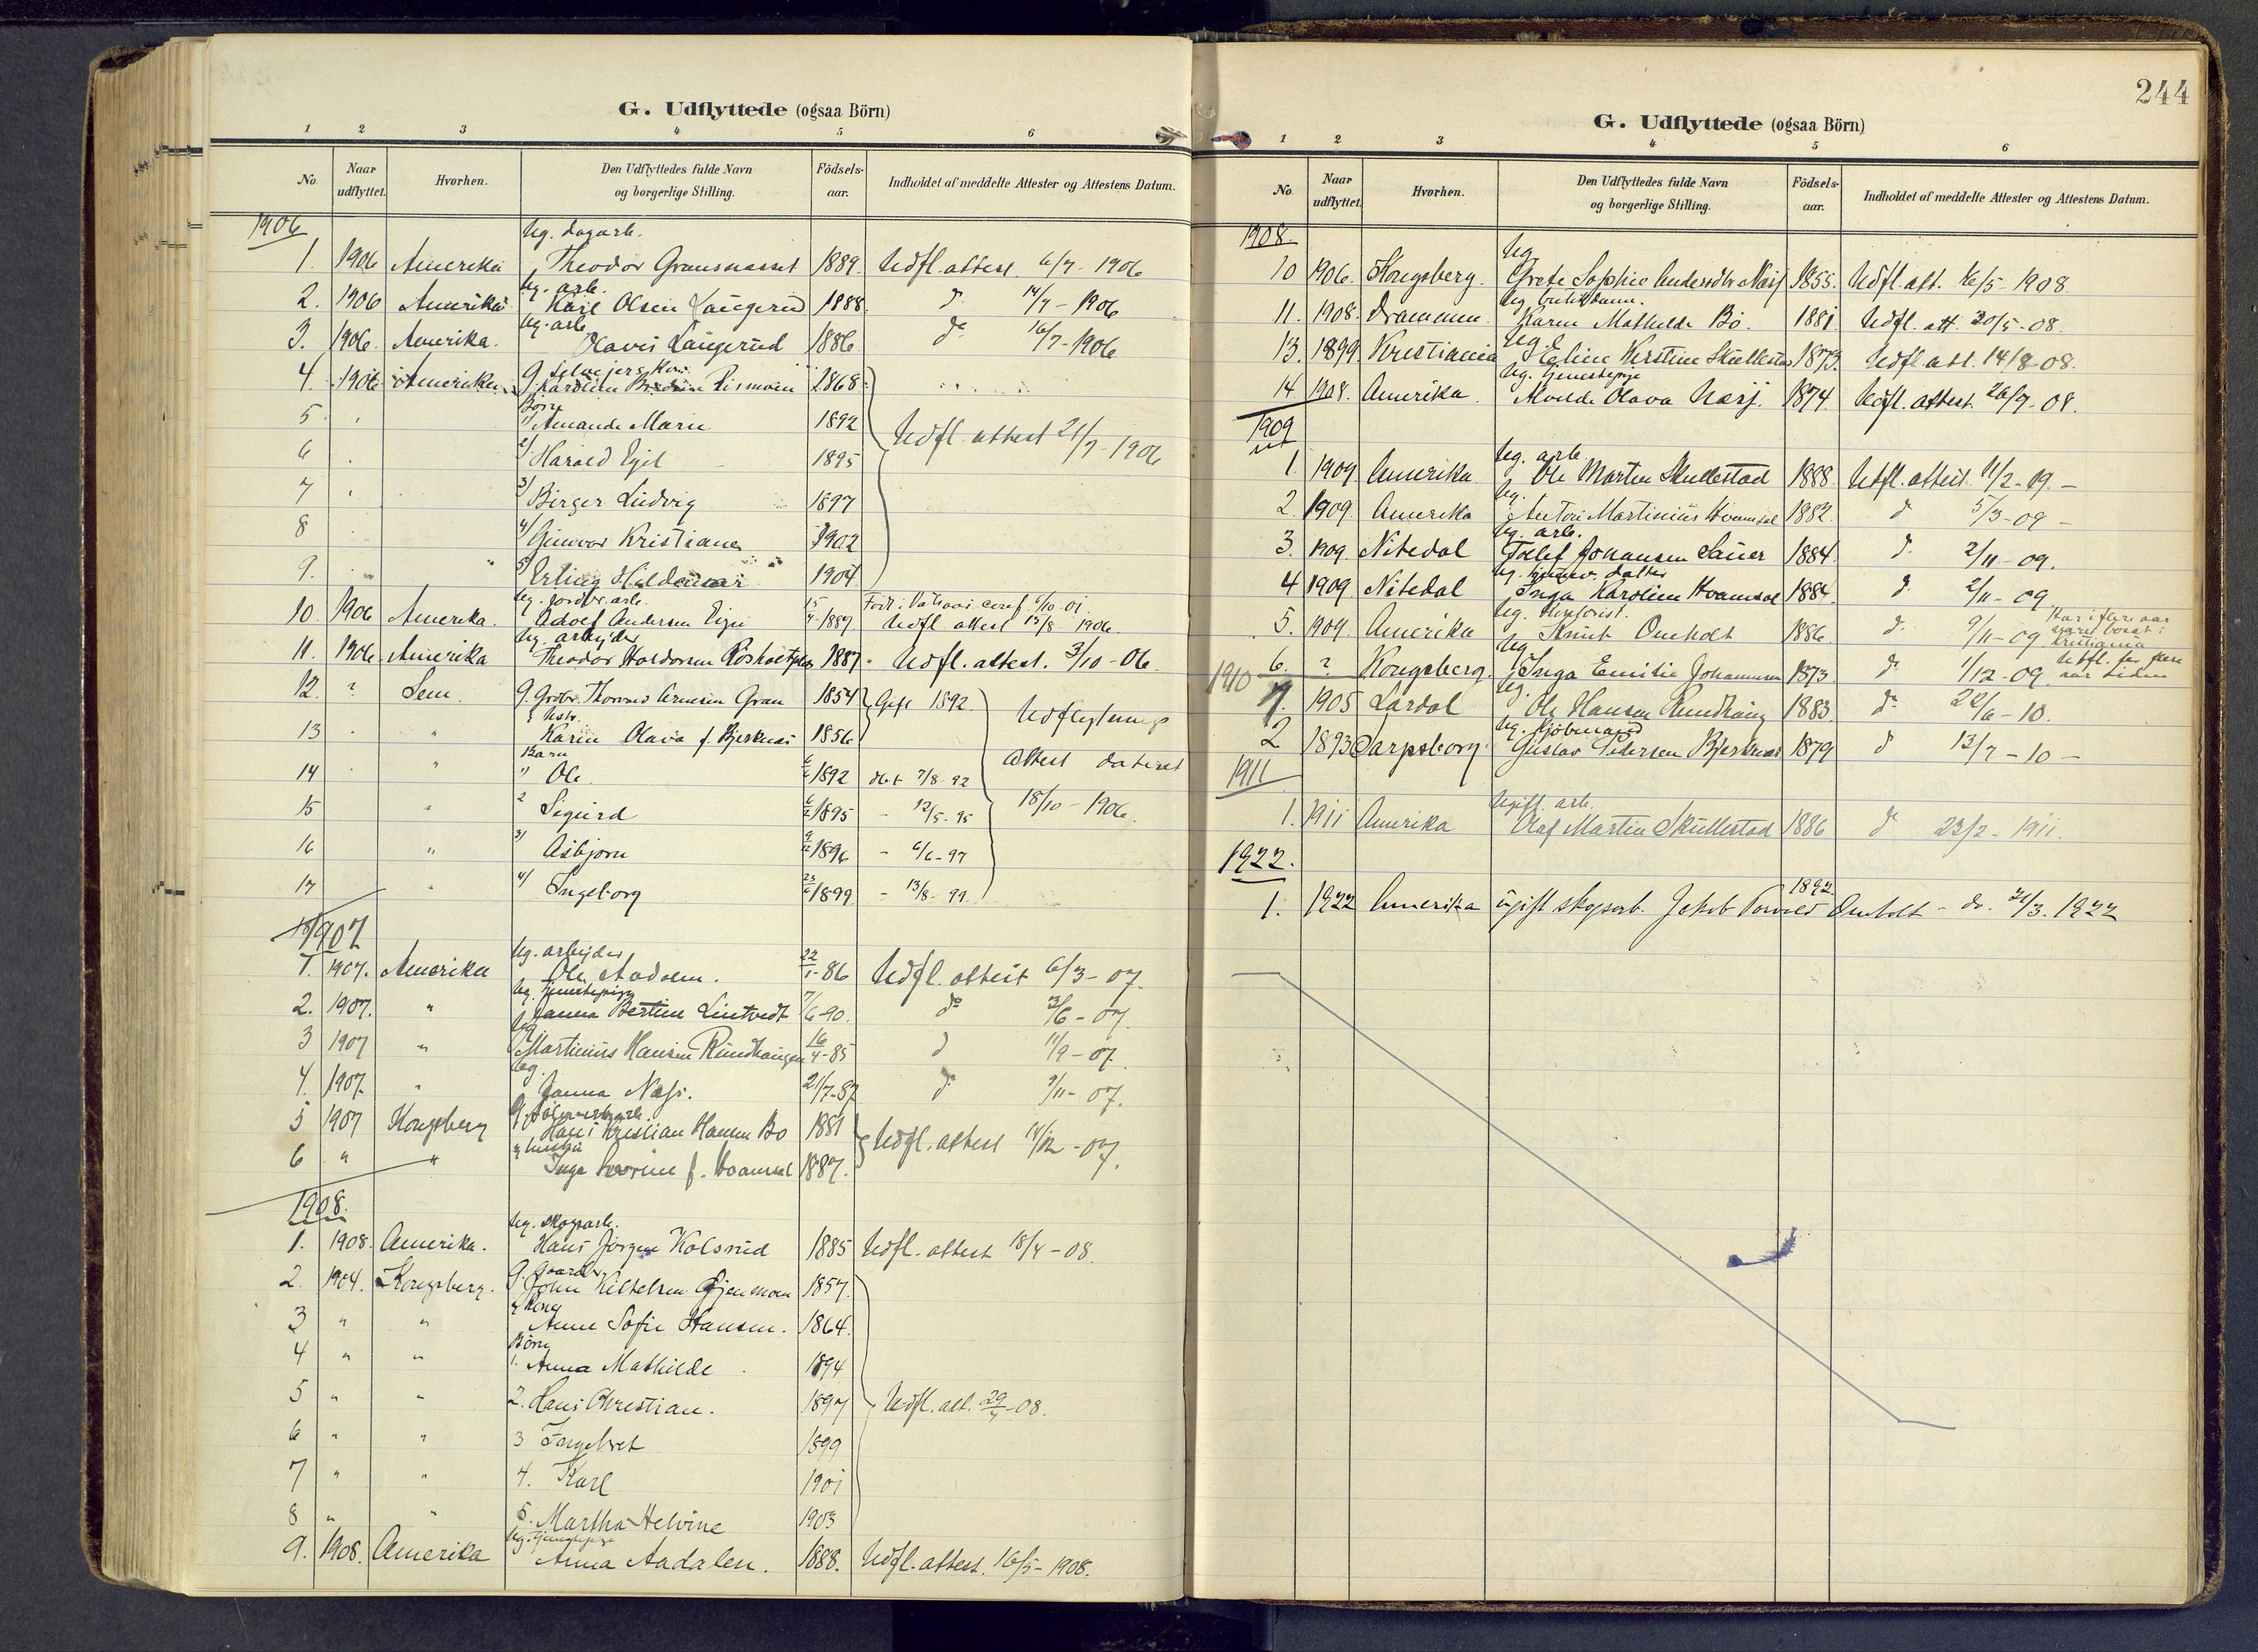 G. Udflyttede (ogsaa Börn)
1 2 3 4 5 6
No. Naar udflyttet. Hvorhen. Den Udflyttedes fulde Navn og borgerlige Stilling. Födsels-aar. Indholdet af meddelte Attester og Attestens Datum.
1906
Ug. dagarb.
1. 1906 Amerika Theodor 1889. Udfl. attest 6/7 - 1906
Ug. arb.
2. 1906 Amerika Karl Olsen Laugerud 1888. do 14/7 - 1906
Ug. arb.
3. 1906. Amerika. Olavus Laugerud 1886 do 16/7 - 1906
4. 1906 Amerika 1868
Börn
5 1) Amanda Marie 1892 Udfl. attest 21/7 - 1906
6 2) Harald Egil 1895
7 3) Birger Ludvig 1897
8 4) Gunvor Kristiane 1902
9. 5) Erling Hildemar 1904
Ug. jordbr. arb.
10. 1906 Amerika. Adolf Andersen 15/4 1887 Udfl. attest 15/8 1906.
Ug. arbejder
11. 1906. Amerika Theodor 1887. Udfl. attest. 3/10 - 06.
12. ? Sem G. Thorvald Arnesen Gran 1854 Gift 1892 Udflytnings
13 " Karen Olava f. Bjerknæs 1856
Barn attest dateret
14 " 1) Ole 1892 döbt 7/8 92
15 " 2 Sigurd 1895 - 12/5. 95 18/10 - 1906.
16 " 3) Asbjörn 1896 - 6/6 - 97
17 " 4) Ingeborg 23/6 1899 - 13/8 - 99.
1907
Ug. arbejder
1. 1907. Amerika Ole Aadalen. 22/1 - 86 Udfl. attest 6/3 - 07.
Ug. tjenestepige
2. 1907. " Janna Bertine Lintvedt 7/6 - 90. do 3/6 - 07.
Ug
3 1907 " Martinius Hansen Rundhaugen 16/4 - 85 do 11/9 - 07.
Ug.
4. 1907. " Janna Næss. 21/7 - 87 do 9/11 - 07.
5 1907 Kongsberg Hans Kristian Hansen Bö 1881 Udfl. attest 14/12 - 07.
6 " " Inga f. Hvamsal 1887.
1908.
Ug. skogsarb.
1. 1908. Amerika. Hans Jörgen Kolsrud 1885 Udfl. attest 18/4 - 08.
2. 1904. Kongsberg. John Kittelsen 1857.
3 " " Anne Sofie Hansen. 1864.
Börn
4 " " 1. Anna Mathilde 1894
5 " " 2. Hans Christian. 1897 Udfl. att. 29/4 - 08.
6 " " 3 Ingebret 1899
7 " " 4. Karl 1901
8 " " 5. Martha Helvine 1903
Ug. tjenestepige
9. 1908. Amerika Anna Aadalen. 1888. Udfl. attest. 16/5 - 1908.
244
G. Udflyttede (ogsaa Börn)
1 2 3 4 5 6
No. Naar udflyttet. Hvorhen. Den Udflyttedes fulde Navn og borgerlige Stilling. Födsels-aar. Indholdet af meddelte Attester og Attestens Datum.
1908.
Ug
10 1906. Kongsberg. Grete Sophie Andersdtr Næss 1855. Udfl. att. 16/5 - 1908.
11. 1908. Drammen. Karen Mathilde Bö. 1881. Udfl. att. 30/5 - 08.
Ug.
13. 1899 Kristiania Eline Kirstine Skullestad 1873. Udfl. att. 14/8 - 08.
Ug. tjenestepige
14 1908. Amerika. Olava Næss. 1874. Udfl. attest. 26/9 - 08.
1909
Ug. arb.
1. 1909 Amerika Ole Martin Skullestad 1888 Udfl. attest 11/2 - 09. -
Ug.
2. 1909. Amerika Anton Martinius Hvamsal 1882. do 5/3 - 09 -
Ug. arb.
3. 1909. Nitedal Tollef Johansen Sauer 1884. do 2/11 - 09.
4 1909 Nitedal Inga Karoline Hvamsal 1884. do 2/11 - 09
5. 1909. Amerika Knut Omholt 1886. do 9/11 - 09 Har i flere aar været bosat i Kristiania
Ug
6. ? Kongsberg. Inga Emilie Johannesen 1873. do 1/12 - 09. Utfl. for flere aar siden
1910
Ug.
1. 1905 Lardal Ole Hansen Rundhaug 1883. do 22/6 - 10.
Ug. kjöbmand
2 1893 Sarpsborg. Gustav Pedersen Bjerknæs 1879 do 13/7 - 10 -
1911
Ugift. arb.
1. 1911 Amerika Olaf Martin Skullestad 1886 do 23/2 - 1911.
1922.
1. 1922 Amerika ugift skogsarb. Jakob Torvald Omholt 1892. - do. 21/3. 1922